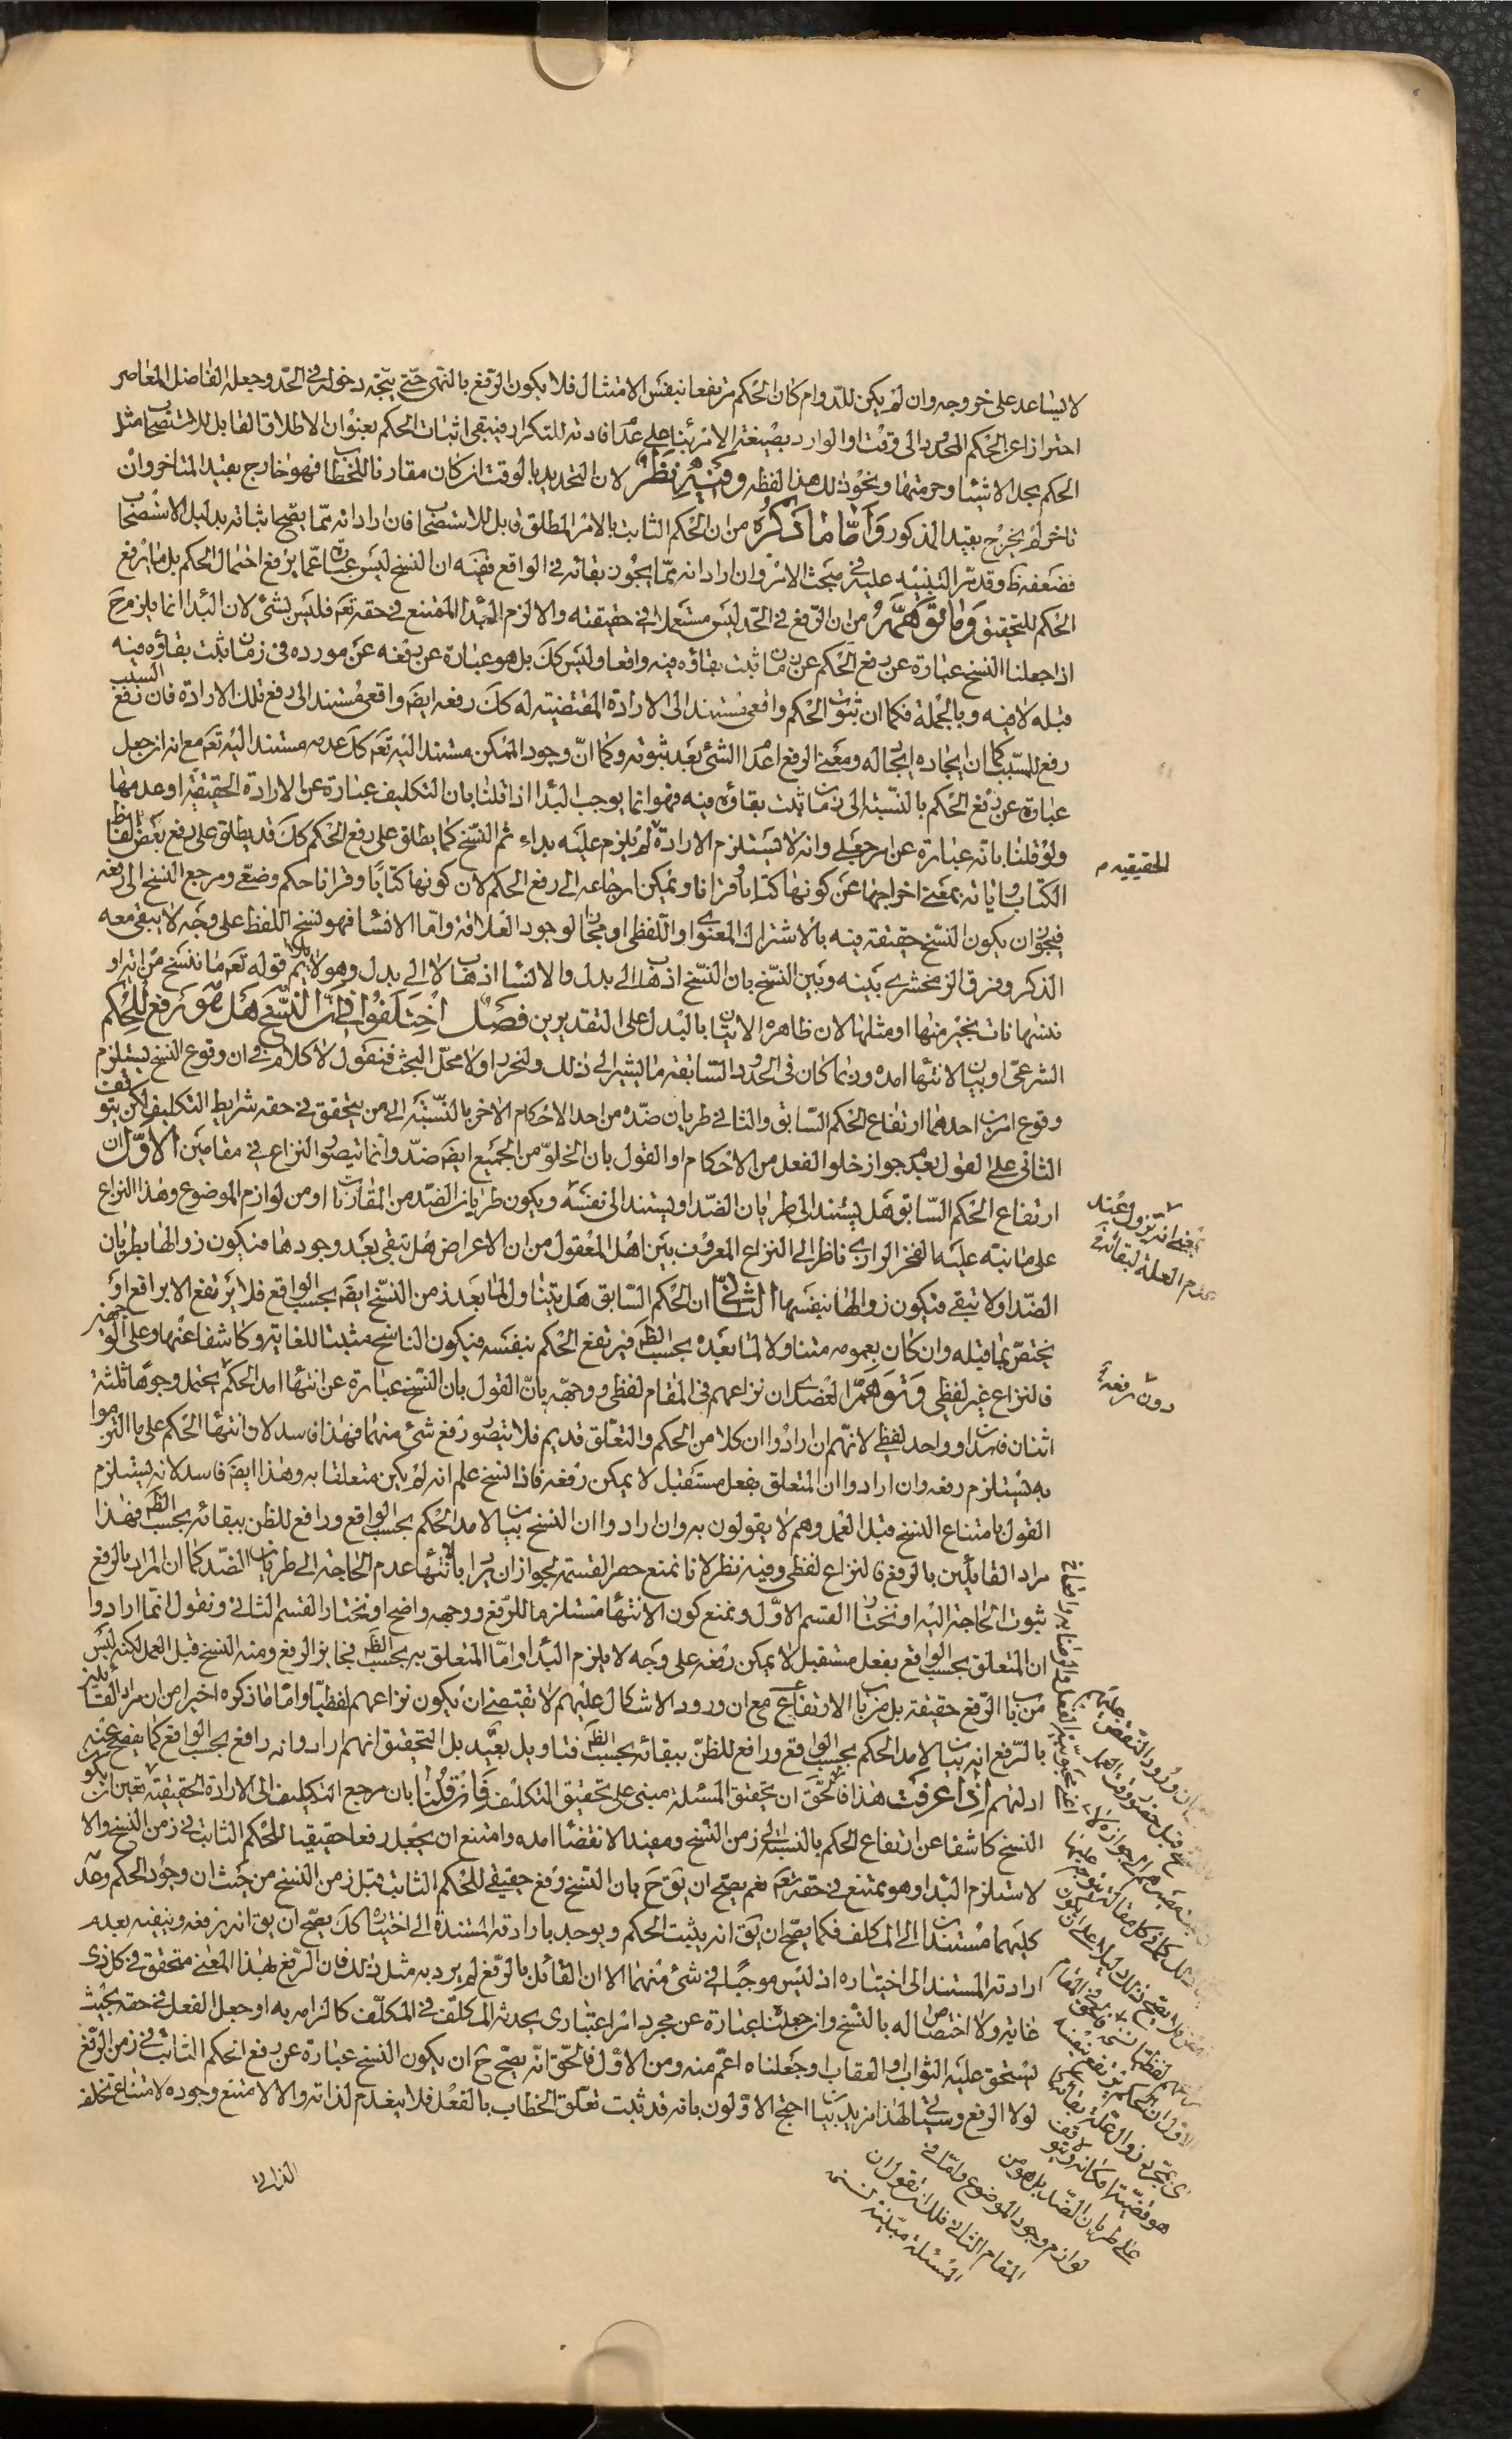 لا يساعد على خروجه وان لم يكن للدوام كان الحكم مرتفعا بنفس الامتثال فلا يكون الرفع بالنهى حتى يتجه دخوله فى الحد وجعله الفاضل المعاصر
احترازا عن الحكم المحدود الى وقت او الوارد بصيغة الامر بناء على عدم افادته للتكرار فيبقى اثبات الحكم بعنوان الاطلاق القابل للاستصحاب مثل
الحكم بحل الاشياء وحرمتها ونحو ذلك هذا لفظه وفيه نظر لان التحديد بالوقت ان كان مقارنا للخطاب فهو خارج بقيد المتاخر وان
تاخر لم يخرج بقيد المذكور واما ما ذكره من ان الحكم الثابت بالامر المطلق قابل للاستصحاب فان اراد انه مما يصح اثباته بدليل الاستصحاب
فضعفه ظ وقد مر التنبيه عليه فى مبحث الامر وان اراد انه مما يجوز بقائه فى الواقع ففيه ان النسخ ليس عبارة عما يرفع احتمال الحكم بل ما يرفع
الحكم للتحقيق وما توهمر من ان الرفع فى الحد ليس مستعملا فى حقيقته والا لزم البدا الممتنع فى حقه تعه فليس بشئ لان البدا انما يلزم ح
اذا جعلنا النسخ عبارة عن رفع الحكم عن زمان ثبت بقاؤه فيه واقعا وليس كك بل هو عبارة عن رفعه عن مورده فى زمان ثبت بقاؤه فيه
قبله لا فيه وبالجملة فكما ان ثبوت الحكم واقعى مستند الى الارادة المقتضية له كك رفعه ايضه واقعى مستند الى رفع تلك الارادة فان رفع السبب
رفع للمسبب كما ان ايجاده ايجاد له ومعنى الرفع اعدام الشئ بعد ثبوته وكما ان وجود الممكن مستند اليه تعه كك عدمه مستند اليه تعه مع انه ان جعل
عبارة عن رفع الحكم بالنسبة الى زمان ثبت بقاؤه فيه فهو انما يوجب البدا اذا قلنا بان التكليف عبارة عن الارادة الحقيقية او عدمها
ولو قلنا بانه عبارة عن امر جعلى وانه لا يستلزم الارادة لم يلزم عليه بداء ثم النسخ كما يطلق على رفع الحكم كك قد يطلق على رفع بعض الفاظ
الحقيقيه م
الكتاب واياته بمعنى اخراجها عن كونها كتابا وقرانا ويمكن ارجاعه الى رفع الحكم لان كونها كتابا وقرانا حكم وضعى ومرجع النسخ الى رفعه
فيجوز ان يكون النسخ حقيقة فيه بالاشتراك المعنوى او اللفظى او مجازا لوجود العلاقة واما الانشا فهو نسخ اللفظ على وجه لا يبقى معه
الذكر وفرق الزمخشرى بينه وبين النسخ بان النسخ اذهاب الى بدل والانشا اذهاب لا الى بدل وهو لا يلائم قوله تعه ما ننسخ من اية او
ننسها نات بخير منها او مثلها لان ظاهره الاتيان بالبدل على التقديرين فصل اختلفوا فى ان النسخ هل هو رفع للحكم
الشرعى او بيان لانتهاء امده وربما كان فى الحدود السابقة ما يشير الى ذلك ولنحرر اولا محل البحث فنقول لا كلام فى ان وقوع النسخ يستلزم
وقوع امرين احدهما ارتفاع الحكم السابق والثانى طريان ضده من احد الاحكام الاخر بالنسبة الى من يتحقق فى حقه شرايط التكليف لكن يتوقف
الثانى على القول بعدم جواز خلو الفعل من الاحكام او القول بان الخلو من الجميع ايضه ضد وانما يتصور النزاع فى مقامين الاول ان
ارتفاع الحكم السابق هل يستند الى طريان الضد او يستند الى نفسه ويكون طريان الضد من المقارنات او من لوازم الموضوع وهذا النزاع
على ما نبه عليه الفخر الرازى ناظر الى النزاع المعروف بين اهل المعقول من ان الاعراض هل تبقى بعد وجودها فيكون زوالها بطريان
الضد او لا تبقى فيكون زوالها بنفسها الثانى ان الحكم السابق هل يتناول لما بعد زمن النسخ ايضه بحسب الواقع فلا يرتفع الا برافع او
يختص بما قبله وان كان بعمومه متناولا لما بعده بحسب الظه فيرتفع الحكم بنفسه فيكون الناسخ مثبتا للغاية وكاشفا عنها وعلى الوجهين
دون رفعه
فالنزاع غير لفظى وتوهم العضدى ان نزاعهم فى المقام لفظى ووجهه بان القول بان النسخ عبارة عن انتهاء امد الحكم يحتمل وجوها ثلثة
اثنان فاسدان وواحد لفظى لانهم ان ارادوا ان كلا من الحكم والتعلق قديم فلا يتصور رفع شئ منهما فهذا فاسد لان انتهاء الحكم على ما التزموا
به يستلزم رفعه وان ارادوا ان المتعلق بفعل مستقبل لا يمكن رفعه فاذا نسخ علم انه لم يكن متعلقا به وهذا ايضه فاسد لانه يستلزم
القول بامتناع النسخ قبل العمل وهم لا يقولون به وان ارادوا ان النسخ بيان لامد الحكم بحسب الواقع ورافع للظن ببقائه بحسب الظه فهذا
مراد القائلين بالرفع فالنزاع لفظى وفيه نظر لانا نمنع حصر القسمة لجواز ان يراد بالانتهاء عدم الحاجة الى طريان الضد كما ان المراد بالرفع
ثبوت الحاجة اليه او نختار القسم الاول ونمنع كون الانتهاء مستلزما للرفع ووجهه واضح او نختار القسم الثانى ونقول انما ارادوا
ان المتعلق بحسب الواقع بفعل مستقبل لا يمكن رفعه على وجه لا يلزم البدا واما المتعلق به بحسب الظه فجايز الرفع ومنه النسخ قبل العمل لكنه ليس
من باب الرفع حقيقة بل من باب الارتفاع مع ان ورود الاشكال عليهم لا يقتضى ان يكون نزاعهم لفظيا واما ما ذكره اخيرا من ان مراد القائلين
بالرفع انه بيان لامد الحكم بحسب الواقع ورافع للظن ببقائه بحسب الظه فتاويل بعيد بل التحقيق انهم ارادوا انه رافع بحسب الواقع كما يفصح عنه
ادلتهم اذا عرفت هذا فالحق ان تحقيق المسئلة مبنى على تحقيق التكليف فان قلنا بان مرجع التكليف الى الارادة الحقيقية تعين ان يكون
النسخ كاشفا عن ارتفاع الحكم بالنسبة الى زمن النسخ ومفيدا لانقضاء امده وامتنع ان يجعل رفعا حقيقيا للحكم الثابت فى زمن النسخ والا
لاستلزم البدا وهو ممتنع فى حقه تعه نعم يصح ان يق ح بان النسخ رفع حقيقى للحكم الثابت قبل زمن النسخ من حيث ان وجود الحكم وعدمه
كليهما مستندان الى المكلف فكما يصح ان يق انه يثبت الحكم ويوجد بارادته المستندة الى اختياره كك يصح ان يق انه يرفعه وينفيه بعدم
ارادته المستند الى اختياره اذ ليس موجبا فى شئ منهما الا ان القائل بالرفع لم يرد به مثل ذلك فان الرفع بهذا المعنى متحقق فى كل ذى
غاية ولا اختصاص له بالنسخ وان جعلناه عبارة عن مجرد امر اعتبارى يحدثه المكلف فى المكلف كالزامه به او جعل الفعل فى حقه بحيث
يستحق عليه الثواب او العقاب او جعلناه اعم منه ومن الاول فالحق انه يصح ح ان يكون النسخ عبارة عن رفع الحكم الثابت فى زمن الرفع
لولا الرفع وسياتى لهذا مزيد بيان احتج الاولون بانه قد ثبت تعلق الخطاب بالفعل فلا ينعدم لذاته والا لامتنع وجوده لامتناع تخلف
الذاتى
على طريان الضد بل هو من
لوازم وجود الموضوع واما فى
المقام الثانى فلك ان تقول ان
المسئلة مبنية